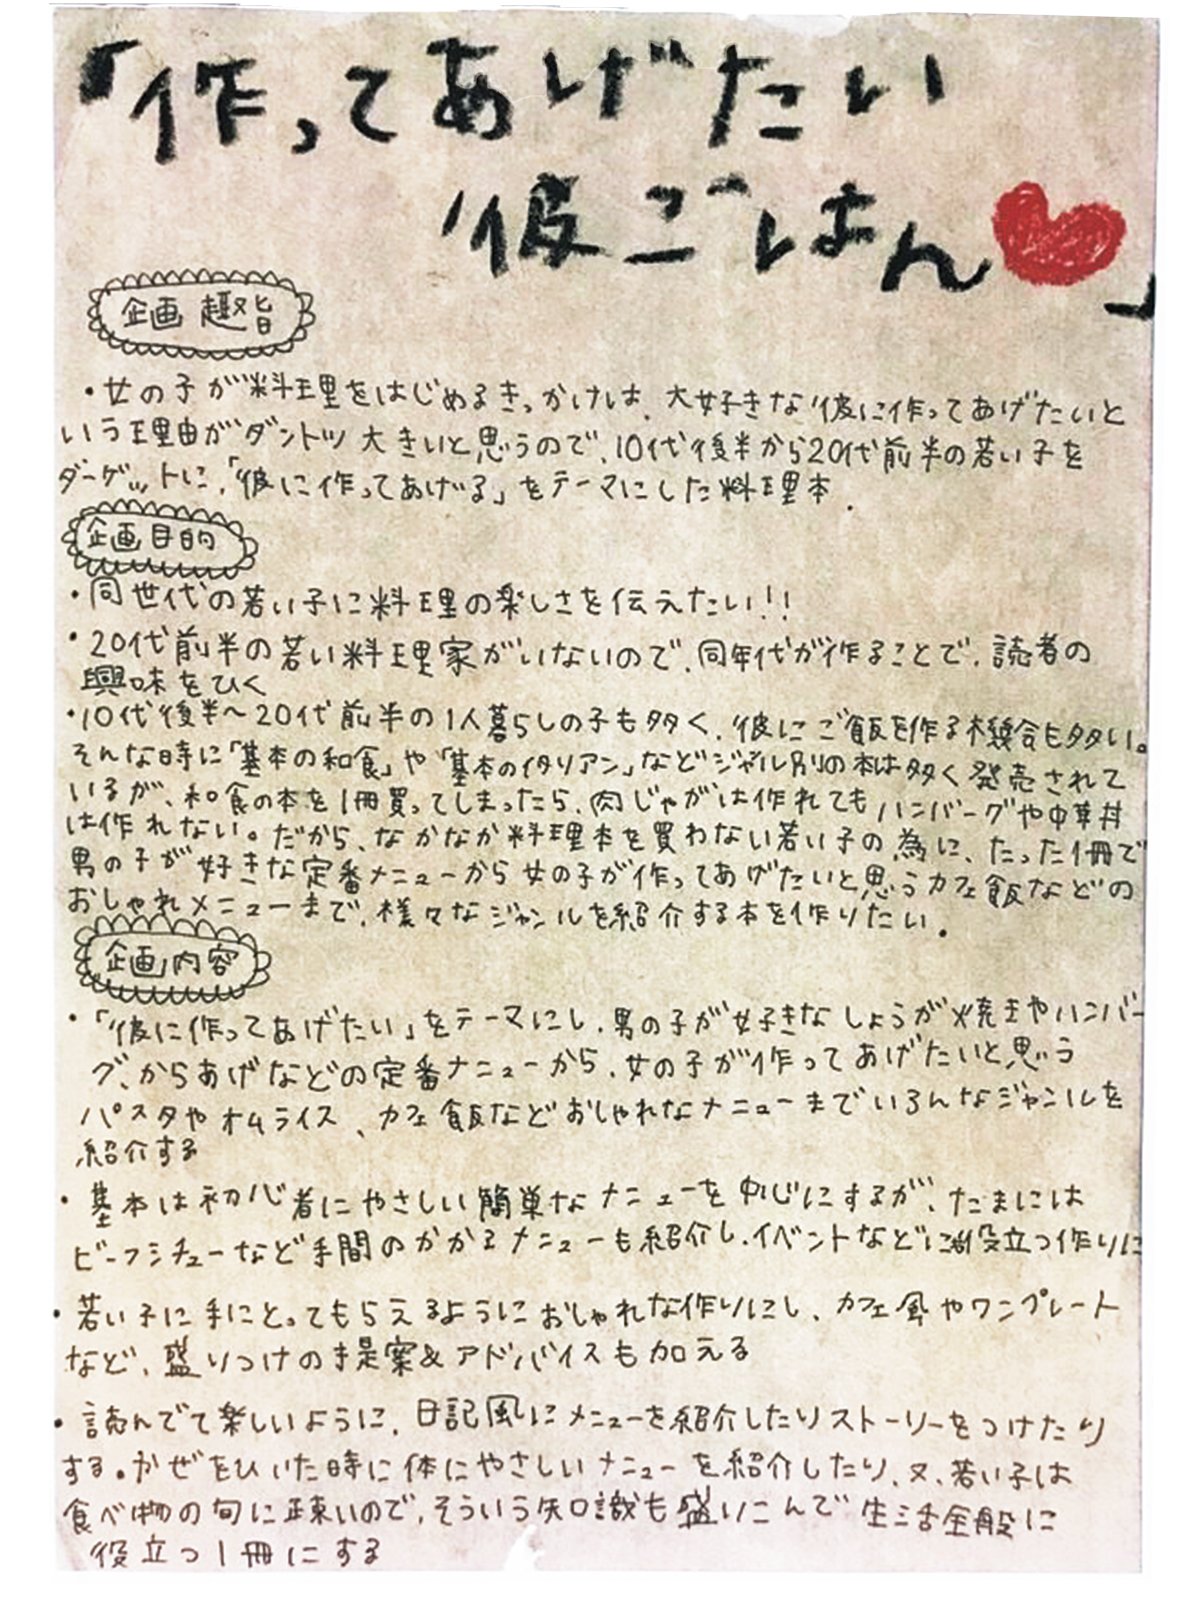 「作ってあげたい
彼ごはん♥」
企画趣旨
・女の子が料理をはじめるきっかけは、大好きな彼に作ってあげたいと
いう理由がダントツ大きいと思うので、10代後半から20代前半の若い子を
ターゲットに、「彼に作ってあげる」をテーマにした料理本.
企画目的
・同世代の若い子に料理の楽しさを伝えたい!!
・20代前半の若い料理家がいないので、同年代が作ることで、読者の
興味をひく
・10代後半〜20代前半の1人暮らしの子も多く、彼にご飯を作る機会も多い。
そんな時に「基本の和食」や「基本のイタリアン」などジャンル別の本は多く発売されて
いるが、和食の本を1冊買ってしまったら、肉じゃがは作れてもハンバーグや中華丼
は作れない。だから、なかなか料理本を買わない若い子の為に、たった1冊で
男の子が好きな定番メニューから女の子が作ってあげたいと思うカフェ飯などの
おしゃれメニューまで、様々なジャンルを紹介する本を作りたい.
企画内容
・「彼に作ってあげたい」をテーマにし、男の子が好きなしょうが焼きやハンバー
グ、からあげなどの定番メニューから、女の子が作ってあげたいと思う
パスタやオムライス、カフェ飯などおしゃれなメニューまでいろんなジャンルを
紹介する
・基本は初心者にやさしい簡単なメニューを中心にするが、たまには
ビーフシチューなど手間のかかるメニューも紹介し、イベントなどにも役立つ作りに
・若い子に手にとってもらえるようにおしゃれな作りにし、カフェ風やワンプレート
など、盛りつけの提案&アドバイスも加える
・読んでて楽しいように、日記風にメニューを紹介したりストーリーをつけたり
する。かぜをひいた時に体にやさしいメニューを紹介したり、又、若い子は
食べ物の旬に疎いので、そういう知識も盛りこんで生活全般に
役立つ1冊にする